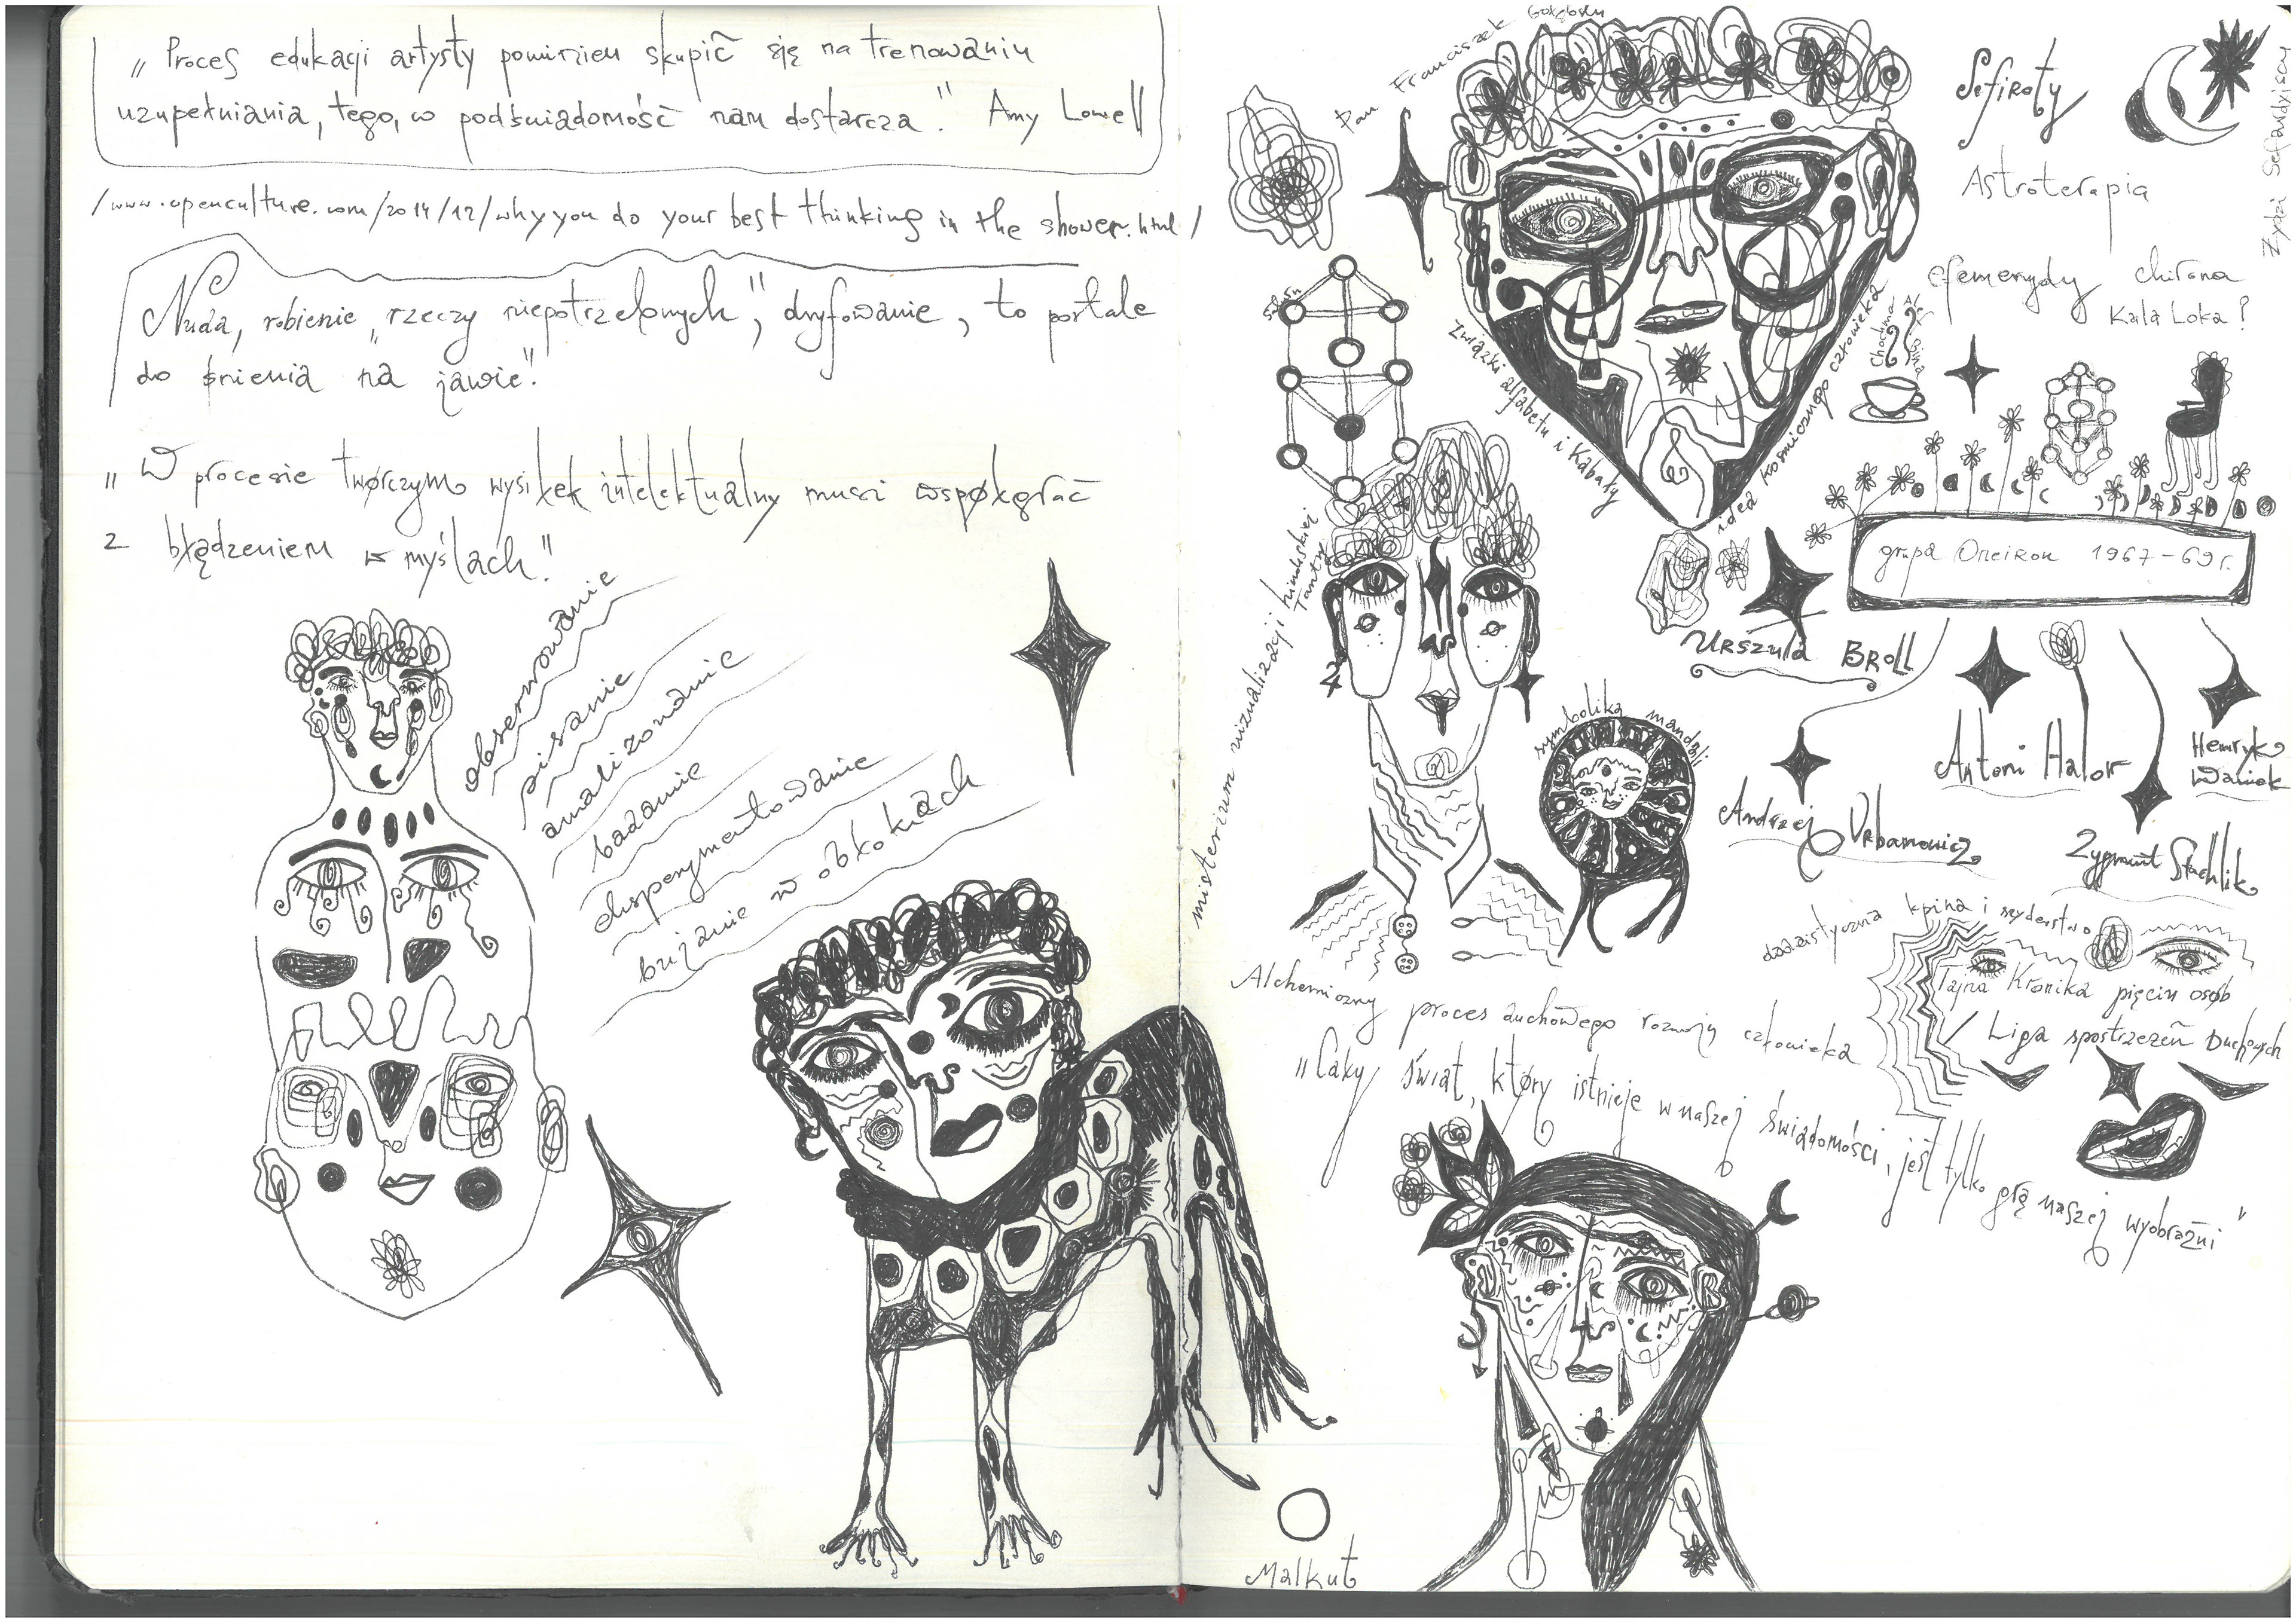 „Proces edukacji artysty powinien skupić się na trenowaniu
uzupełniania, tego, co podświadomość nam dostarcza." Amy Lowell
/www.openculture.com/2014/12/why you do your best thinking in the shower.html/
Nuda, robienie „rzeczy niepotrzebnych", dryfowanie, to portale
do śnienia na jawie".
„W procesie twórczym wysiłek intelektualny musi współgrać
z błądzeniem w myślach."
obserwowanie
pisanie
analizowanie
badanie
eksperymentowanie
bujanie w obłokach
Pan Franciszek
Sefiroty
Żydzi Sefardyjscy
Astroterapia
efemerydy chirona
Kala Loka?
Chochma
Bina
związki alfabetu i Kabały
idea kosmicznego człowieka
misterium wizualizacji hinduskiej
Tantry
grupa Oneiron 1967-69r.
Urszula Broll
Antoni Halor
Henryk
Waniek
Andrzej Urbanowicz
Zygmunt Stuchlik
symbolika mandali
dadaistyczna kpina i szyderstwo
Tajna Kronika pięciu osób
/ Liga spostrzeżeń Duchowych
Alchemiczny proces duchowego rozwoju człowieka
„Cały świat, który istnieje w naszej świadomości, jest tylko grą naszej wyobraźni"
Malkut